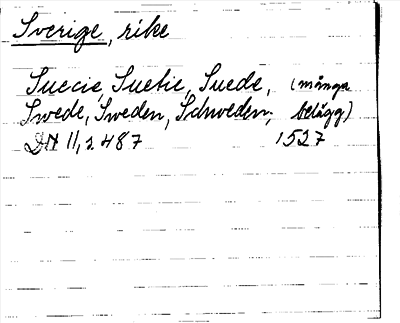 Sverige, rike
Suecie, Suetie, Suede, (många
Swede, Sweden, Schweden, belägg)
DN 11,2 487 1527